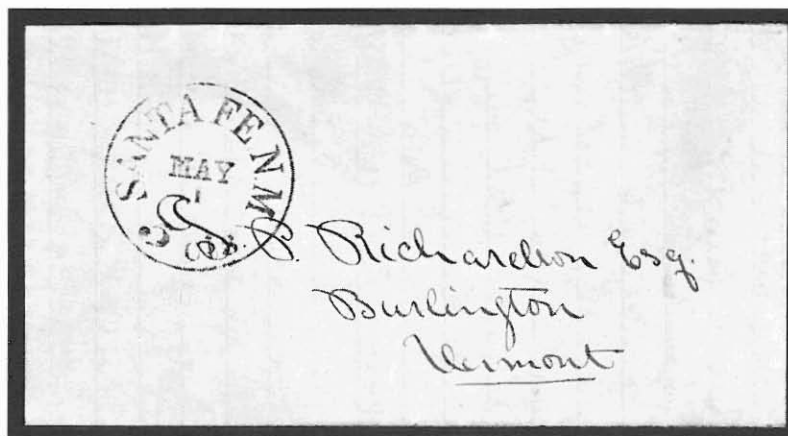 SANTA FE N M
MAY
1
P. Richardson Esq.
Burlington
Vermont